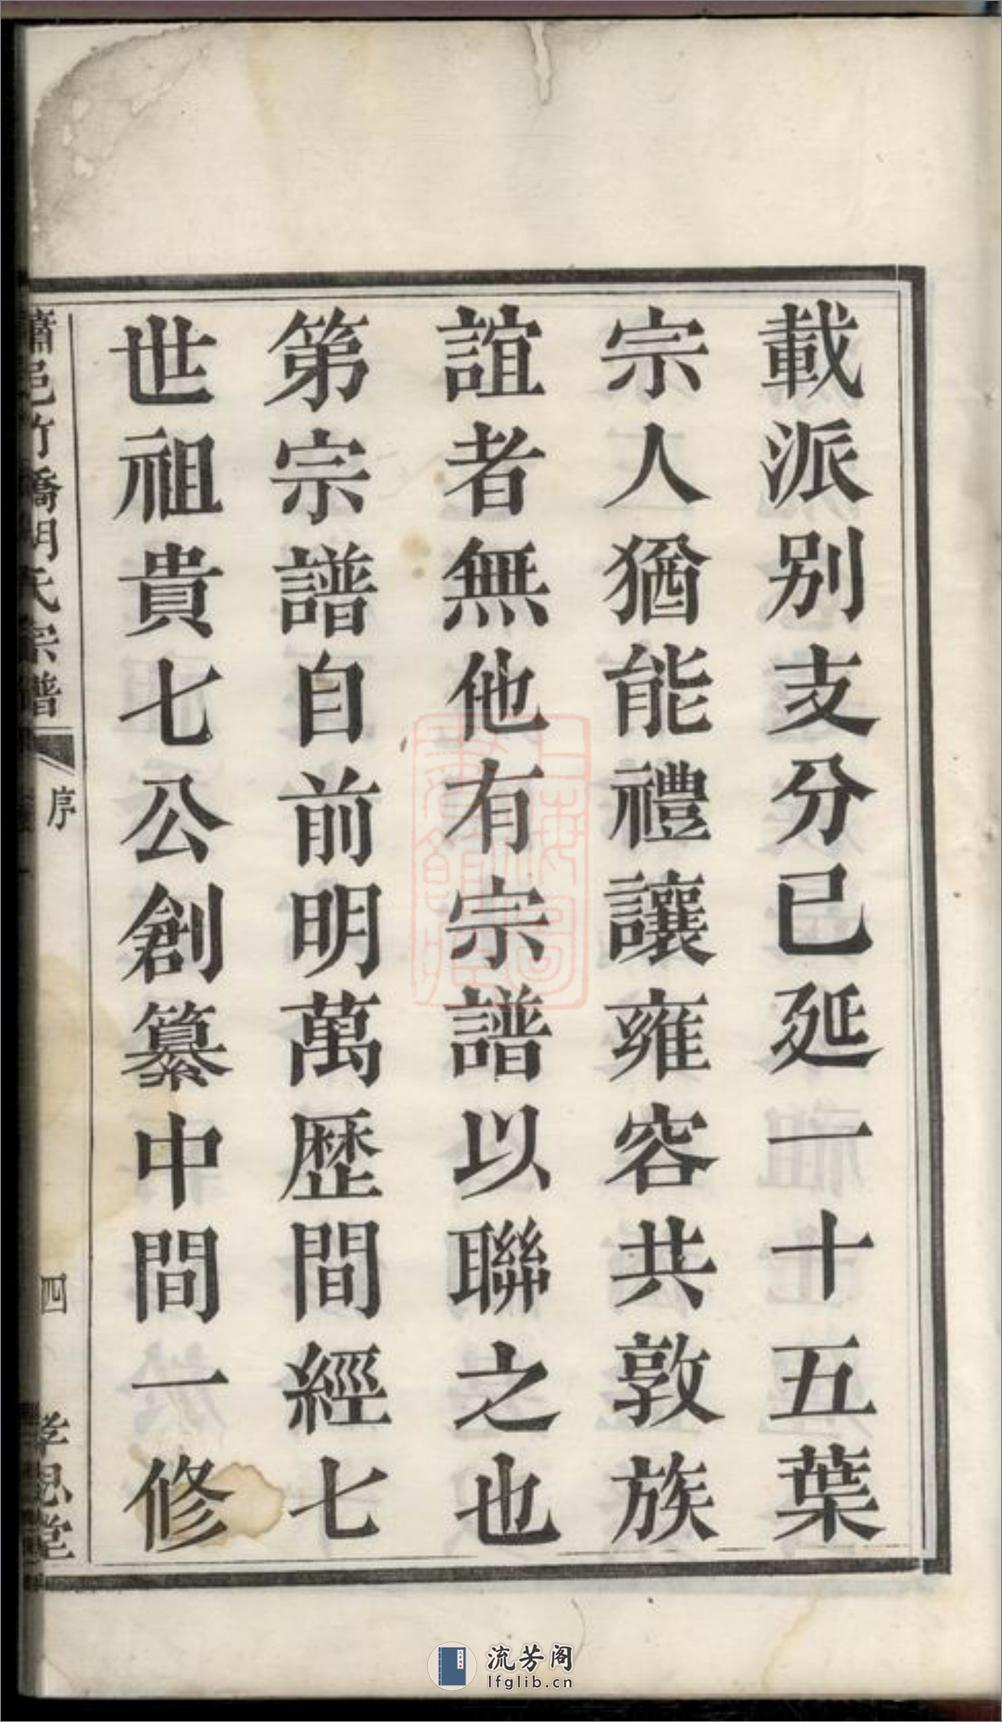 載派別支分已延一十五葉
宗人猶能禮讓雍容共敦族
誼者無他有宗譜以聯之也
第宗譜自前明萬歷間經七
世祖貴七公創纂中間一修
蕭邑竹橋胡氏宗譜
序
四
孝思堂
流芳阁
lfglib.cn